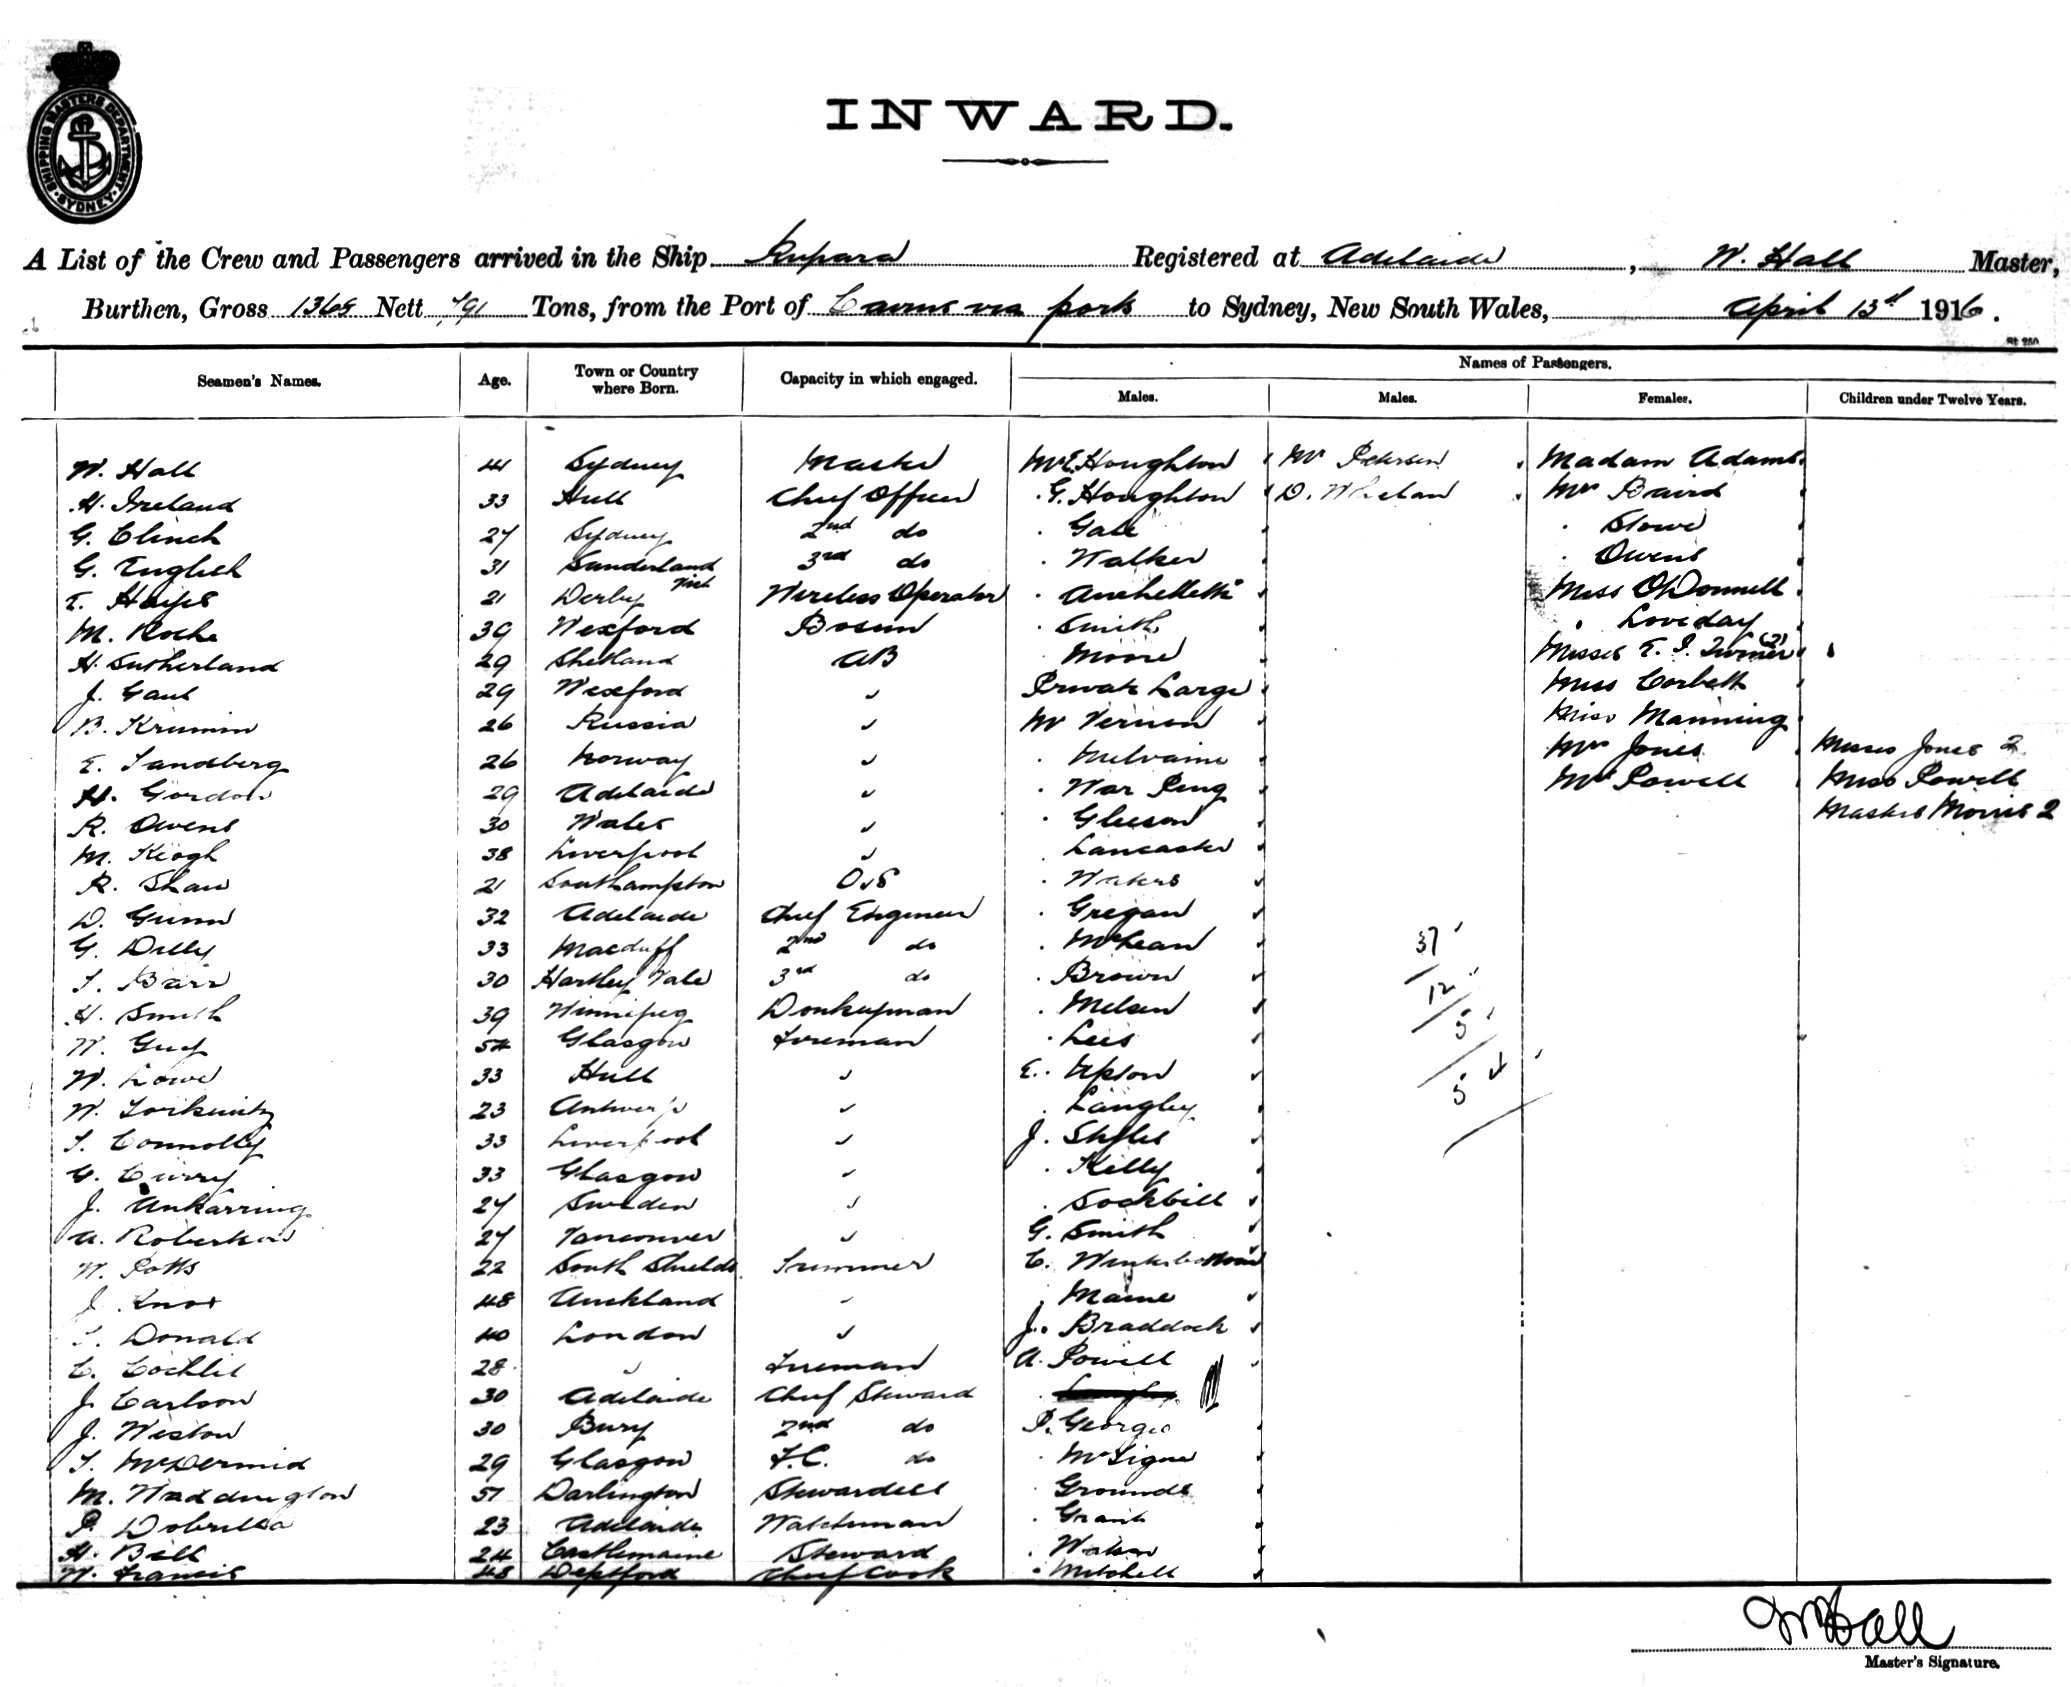 SHIPPING MASTERS DEPARTMENT
SYDNEY
INWARD.
A List of the Crew and Passengers arrived in the Ship Rupara Registered at Adelaide, W. Hall Master,
Burthen, Gross 1365 Nett 791 Tons, from the Port of Cairns via ports to Sydney, New South Wales, April 13d 1916.
Seamen's Names. Age. Town or Country where Born. Capacity in which engaged. Names of Passengers.
Males. Males. Females. Children under Twelve Years.
W. Hall 44 Sydney Master Mr E. Houghton Mr Petersen Madam Adams
H. Ireland 33 Hull Chief Officer G. Houghton D. Whelan Mrs Baird
G. Clinch 27 Sydney 2nd do Gale Stowe
G. English 31 Sunderland 3rd do Walker Owens
E. Hayes 21 Derby Vict Wireless Operator Miss O'Donnell
M. Roche 39 Wexford Bosun Smith Loveday
H. Sutherland 29 Shetland AB Moore Misses E. I. Turner (2)
J. Gaul 29 Wexford " Private Large Miss Corbett
B. Krumin 26 Russia " Mr Vernon Miss Manning
E. Sandberg 26 Norway " McIlvaine Mrs Jones Misses Jones 2
H. Gordon 29 Adelaide " War Peng Mrs Powell Miss Powell
R. Owens 30 Wales " Gleeson Masters Morris 2
M. Keogh 38 Liverpool " Lancaster
R. Shaw 21 Southampton O.S Waters
D. Gunn 32 Adelaide Chief Engineer Gregan
G. Dilly 33 Macduff 2nd do McLean 37
T. Barr 30 Hartley Vale 3rd do Brown 12
H. Smith 39 Winnipeg Donkeyman Melsen 5
W. Guy 54 Glasgow Fireman Lees
W. Lowe 33 Hull " E. Upton 54
W. 23 Antwerp " Langley
T. Connolly 33 Liverpool " J. Stiles
G. Curry 33 Glasgow " Kelly
J. Unkarring 27 Sweden " Sockbill
A. Robertson 27 Vancouver " G. Smith
W. Potts 22 South Shields Trimmer C. Winterbottom
J. Knox 48 Auckland " Maine
T. Donald 40 London " J. Braddock
C. 28 " Fireman A. Powell
J. Carlson 30 Adelaide Chief Steward
J. Weston 30 Bury 2nd do P. George
T. McDermid 29 Glasgow F.C. do
M. Waddington 51 Darlington Stewardess Grounds
P. 23 Adelaide Watchman Grant
H. Bell 24 Castlemaine Steward Watson
W. Francis 48 Deptford Chief Cook Mitchell
W Hall
Master's Signature.